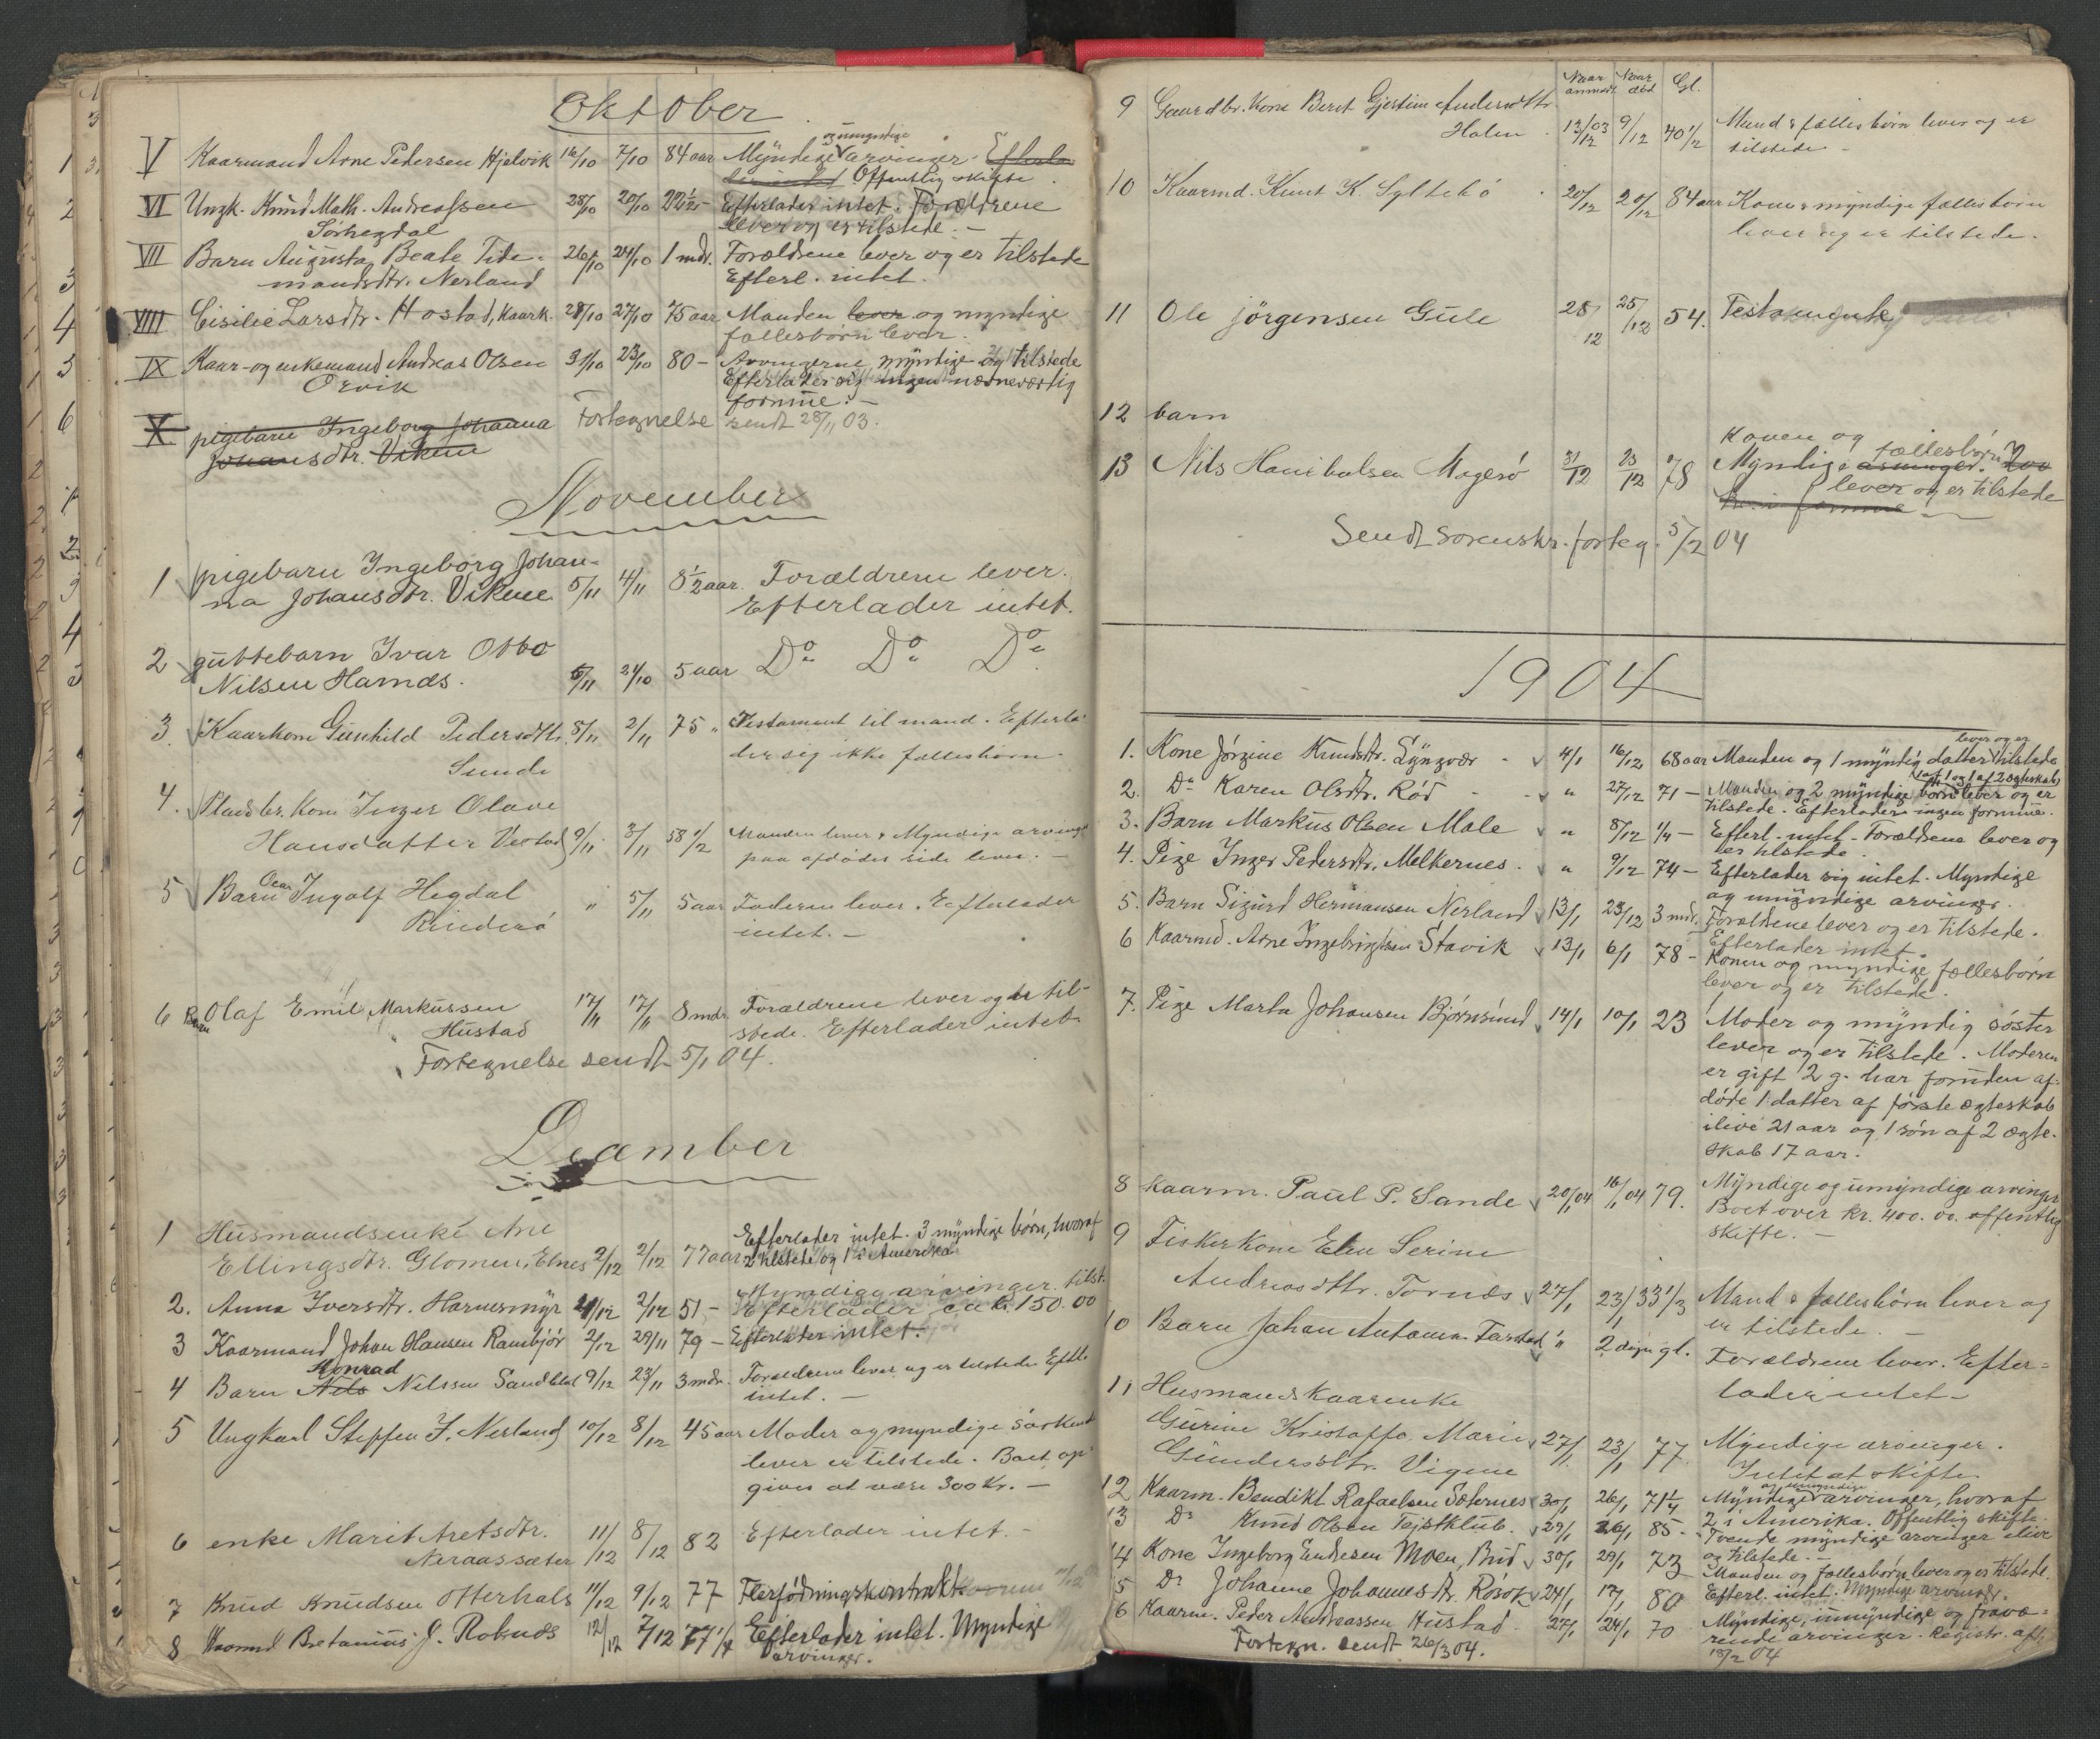 Oktober
og umyndige
V Kaarmand Arne Pedersen Hjelvik 16/10 7/10 84 aar Myndige arvinger. Efterla-
der intet Offentlig skifte.
VI Ungk. Knud Math. Andreassen 28/10 20/10 22 1/2 - Efterlader intet. Forældrene
Torhegdal lever og er tilstede. -
VII Barn Augusta Beate Tide- 26/10 24/10 1 mdr. Forældrene lever og er tilstede
mandsdtr. Nerland Efterl. intet.
VIII Cisilie Larsdtr. Hostad, Kaark. 28/10 27/10 75 aar Manden lever og myndige
fællesbørn lever.
IX Kaar- og enkemand Andreas Olsen 31/10 23/10 80 - Arvingerne myndige og tilstede
Orvik Efterlader sig ingen nævneværdig
formue. -
X pigebarn Ingeborg Johanna Fortegnelse sendt 28/11 03.
Johansdtr. Vikene
November
1 pigebarn Ingeborg Johan-
na Johansdtr. Vikene 5/11 4/11 8 1/2 aar. Forældrene lever.
Efterlader intet.
2 guttebarn Ivar Otto Do Do Do
Nilsen Harnæs. 6/11 24/10 5 aar
3. Kaarkone Gunhild Pedersdtr. 8/11 2/11 75 " Testament til mand. Efterla-
Sunde der sig ikke fællesbørn.
4. Pladsbr. kone Inger Olave
Hansdatter Vestad 9/11 3/11 58 1/2 Manden lever & Myndige arvinger
paa afdødes side lever. -
5 Barn Oean Ingolf Hegdal " 5/11 5 aar Faderen lever. Efterlader
Rinderø intet. -
6 Barn Olaf Emil Markussen 17/11 17/11 8 mdr. Forældrene lever og er til-
Hustad stede. Efterlader intet.
Fortegnelse sendt 5/1 04.
December
1 Husmandsenke Ane Efterlader intet. 3 myndige børn, hvoraf
Ellingsdtr. Glomen, Elnes 2/12 2/12 77 aar 2 tilstede og 1 i Amerika
Myndige arvinger tilst.
2. Anna Iversdtr. Harnesmyr 4/12 2/12 51 - Efterlader ca kr. 150.00
3 Kaarmand Johan Hansen Rambjør 2/12 29/11 79 - Efterlader intet.
Konrad
4 Barn Nils Nilssen Sandblåst 9/12 23/11 3 mdr. Forældrene lever og er tilstede. Eftl.
intet. -
5 Ungkarl Steffen J. Nerland 10/12 8/12 45 aar Moder og myndige søskend
lever er tilstede. Boet op-
gives at være 300 Kr. -
6 enke Marit Aretsdtr. 11/12 8/12 82 Efterlader intet. -
Neraassæter
7 Knud Knudsen Otterhals 11/12 9/12 77 Flerfødningskontrakt
8 Kaarmd Bretanius J. Roknæs 12/12 7/12 77 1/2 Efterlader intet. Myndige
arvinger.
Naar anmeldt Naar død Gl.
9 Gaardbr. kone Beret Gjertine Andersdtr.
Holen 12/12 03 9/12 40 1/2 Mand & fælles børn lever og er
tilstede -
10 Kaarmd. Knut K. Syltebø 20/12 20/12 84 aar Kone & myndige fællesbørn
lever og er tilstede.
11 Ole Jörgensen Gule 28/12 25/12 54. Testamente
12 barn
Konen og fællesbørn
13 Nils Hanibalsen Magerø 31/12 23/12 78 Myndige arvinger.
lever og er tilstede
Sendt sorenskr. forteg. 5/2 04
1904
lever og er
1. Kone Jörgine Knudsdtr. Lÿngvær 4/1 16/12 68 aar Manden og 1 myndig datter tilstede
af 1 og 1 af 2 ægteskab
2. Do Karen Olsdtr. Rød " 27/12 71 - Manden og 2 myndige børn lever og er
tilstede. Efterlader ingen formue.
3. Barn Markus Olsen Male " 8/12 1/4 - Efterl. intet. Forældrene lever og
er tilstede.
4. Pige Inger Pedersdtr. Melkernes " 9/12 74 - Efterlader sig intet. Myndige
og umyndige arvinger.
5. Barn Sigurd Hermansen Nerland 13/1 23/12 3 mdr. Forældrene lever og er tilstede.
Efterlader intet.
6 Kaarmd. Arne Ingebrigtsen Stavik 13/1 6/1 78 - Konen og myndige fællesbørn
lever og er tilstede.
7. Pige Marta Johansen Bjørnsund 14/1 10/1 23 Moder og myndig søster
lever og er tilstede. Moderen
er gift 2 g. har foruden af-
døde 1 datter af første ægteskab
ilive 21 aar og 1 søn af 2 ægte-
skab 17 aar.
8 Kaarm. Paul P. Sande 20/1 04 16/1 04 79. Myndige og umyndige arvinger
Boet over kr. 400.00. offentlig
skifte. -
9 Fiskerkone Elen Serine
Andreasdtr. Tornæs 27/1 23/1 33 1/3 Mand & fællesbørn lever og
er tilstede. -
10 Barn Johan Antonsen Farstad " 2 døgn gl. Forældrene lever. Efter-
lader intet -
11 Husmands Kaarenke
Gurine Kristoffa Marie 27/1 23/1 77. Myndige arvinger.
Gundersdtr. Vigene Intet at skifte.
og umyndige
12 Kaarm. Bendikt Rafaelsen Sæternes 30/1 26/1 71 1/4 Myndige arvinger, hvoraf
2 i Amerika. Offentlig skifte.
13 Do Knud Olsen Tejstklub. 29/1 26/1 85 - Tvende myndige arvinger ilive
og tilstede. -
14 Kone Ingeborg Endresen Moen, Bud 30/1 29/1 73 Manden og fællesbørn lever og er tilstede.
15 Do Johanne Johannesdtr. Rösok 24/1 17/1 80 Efterl. intet. Myndige arvinger.
16 Kaarm. Peder Andreassen Hustad 27/1 24/1 70 Myndige, umyndige og fravæ-
rende arvinger. Registr. aft.
18/2 04
Fortegn. sendt 26/3 04.